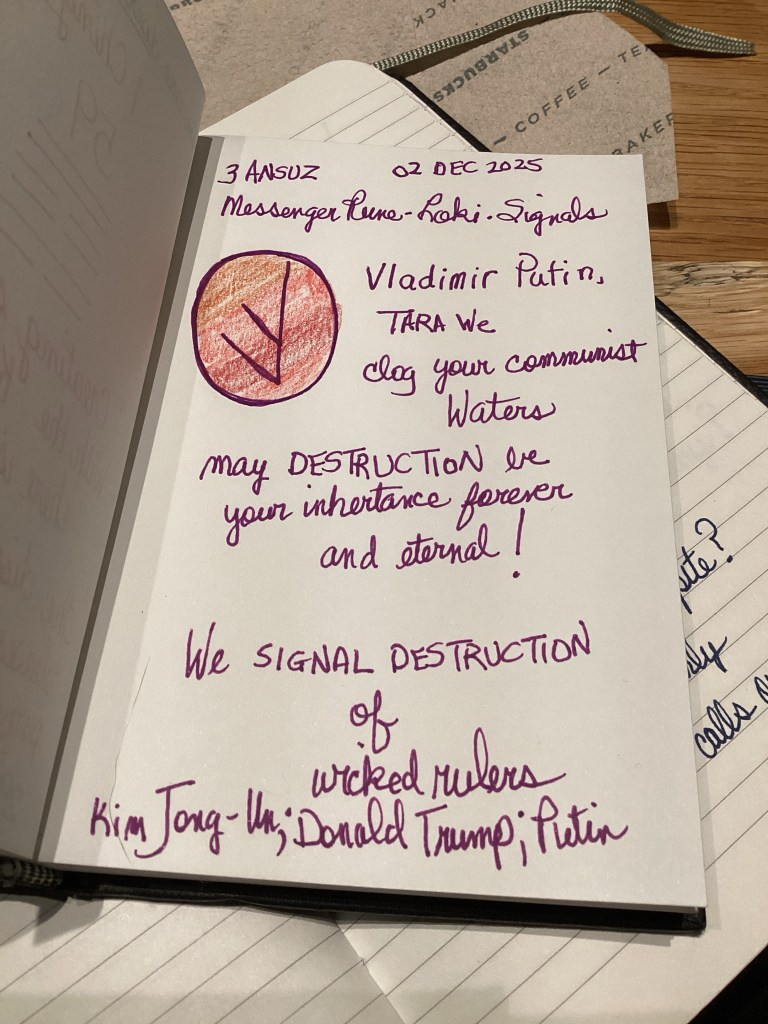 STARBUCKS
COFFEE — TE
BAKER
ACK
3 ANSUZ 02 DEC 2025
Messenger Rune - Loki. Signals
Vladimir Putin,
TARA We
clog your communist
Waters
may DESTRUCTION be
your inhertance forever
and eternal!
We SIGNAL DESTRUCTION
of
wicked rulers
Kim Jong-Un; Donald Trump; Putin
calls